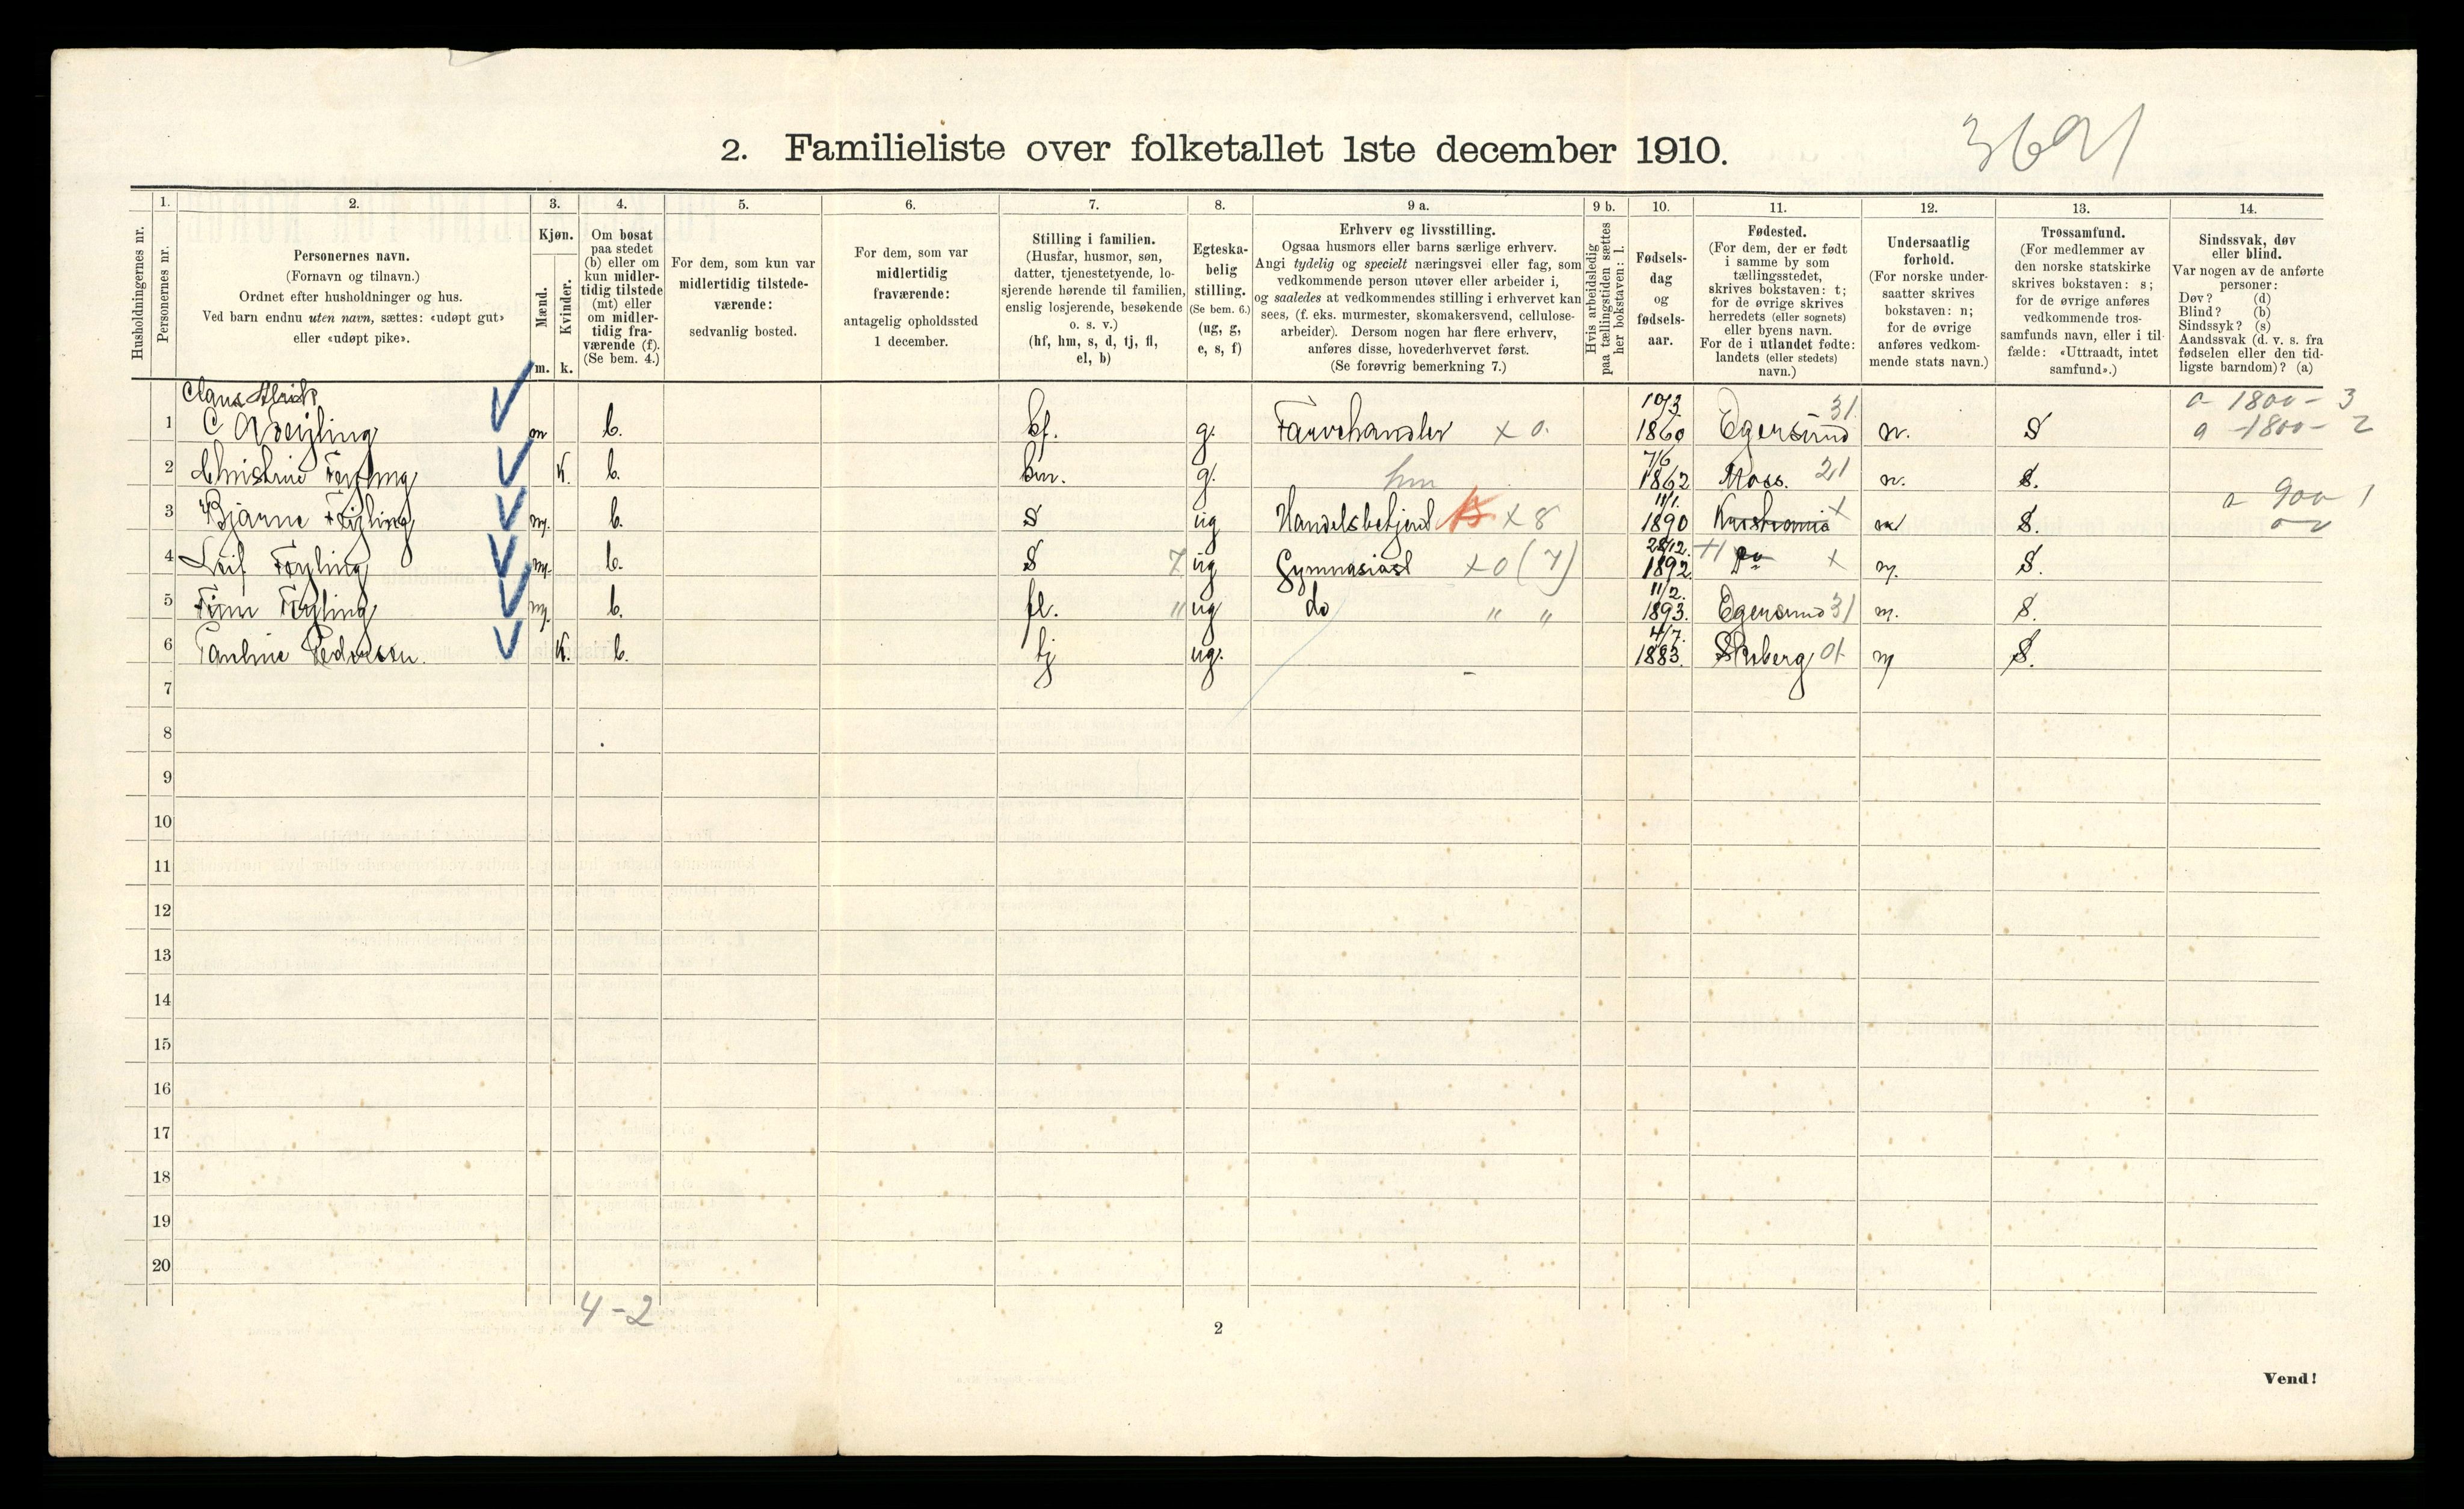 3691
2. Familieliste over folketallet 1ste december 1910.
Husholdningernes nr.
1.
Personernes nr.
2.
Personernes navn.
(Fornavn og tilnavn.)
Ordnet efter husholdninger og hus.
Ved barn endnu uten navn, sættes: «udøpt gut»
eller «udøpt pike».
3.
Kjøn.
Mænd.
Kvinder.
m. k.
4.
Om bosat
paa stedet
(b) eller om
kun midler-
tidig tilstede
(mt) eller
om midler-
tidig fra-
værende (f).
(Se bem. 4.)
5.
For dem, som kun var
midlertidig tilstede-
værende:
sedvanlig bosted.
6.
For dem, som var
midlertidig
fraværende:
antagelig opholdssted
1 december.
7.
Stilling i familien.
(Husfar, husmor, søn,
datter, tjenestetyende, lo-
sjerende hørende til familien,
enslig losjerende, besøkende
o. s. v.)
(hf, hm, s, d, tj, fl,
el, b)
8.
Egteska-
belig
stilling.
(Se bem. 6.)
(ug, g,
e, s, f)
9 a.
Erhverv og livsstilling.
Ogsaa husmors eller barns særlige erhverv.
Angi tydelig og specielt næringsvei eller fag, som
vedkommende person utøver eller arbeider i,
og saaledes at vedkommendes stilling i erhvervet kan
sees, (f. eks. murmester, skomakersvend, cellulose-
arbeider). Dersom nogen har flere erhverv,
anføres disse, hovederhvervet først.
(Se forøvrig bemerkning 7.)
9 b.
Hvis arbeidsledig
paa tællingstiden sættes
her bokstaven: l.
10.
Fødsels-
dag
og
fødsels-
aar.
11.
Fødested.
(For dem, der er født
i samme by som
tællingsstedet,
skrives bokstaven: t;
for de øvrige skrives
herredets (eller sognets)
eller byens navn.
For de i utlandet fødte:
landets (eller stedets)
navn.)
12.
Undersaatlig
forhold.
(For norske under-
saatter skrives
bokstaven: n;
for de øvrige
anføres vedkom-
mende stats navn.)
13.
Trossamfund.
(For medlemmer av
den norske statskirke
skrives bokstaven: s;
for de øvrige anføres
vedkommende tros-
samfunds navn, eller i til-
fælde: «Uttraadt, intet
samfund».)
14.
Sindssvak, døv
eller blind.
Var nogen av de anførte
personer:
Døv? (d)
Blind? (b)
Sindssyk? (s)
Aandssvak (d. v. s. fra
fødselen eller den tid-
ligste barndom)? (a)
Claus 10/3 31 a 1800 - 3
1 C m b. hf. g. Farvehandler x 0. 1860 Egersund n. S a -1800- 2
2 Christine Føyling K. b. hm. g. hm 7/6 1862 Moss. 21 n. S.
3 Bjarne Føyling m. b. S ug Handelsbetjent x 8 11/1. 1890 Kristiania x n S. a 900 1
4 Leif Føyling m. b. S 7 ug Gymnasiast x 0 (7) 28/12. 1892. Do x n. S.
5 Finn Føyling m. b. fl. " ug do " " 11/2. 1893. Egersund 31 n. S.
6 Pauline Pedersen. K. b. tj ug. - 4/7. 1883. Skiberg 01 n S.
7
8
9
10
11
12
13
14
15
16
17
18
19
20
4 - 2
2
Vend!